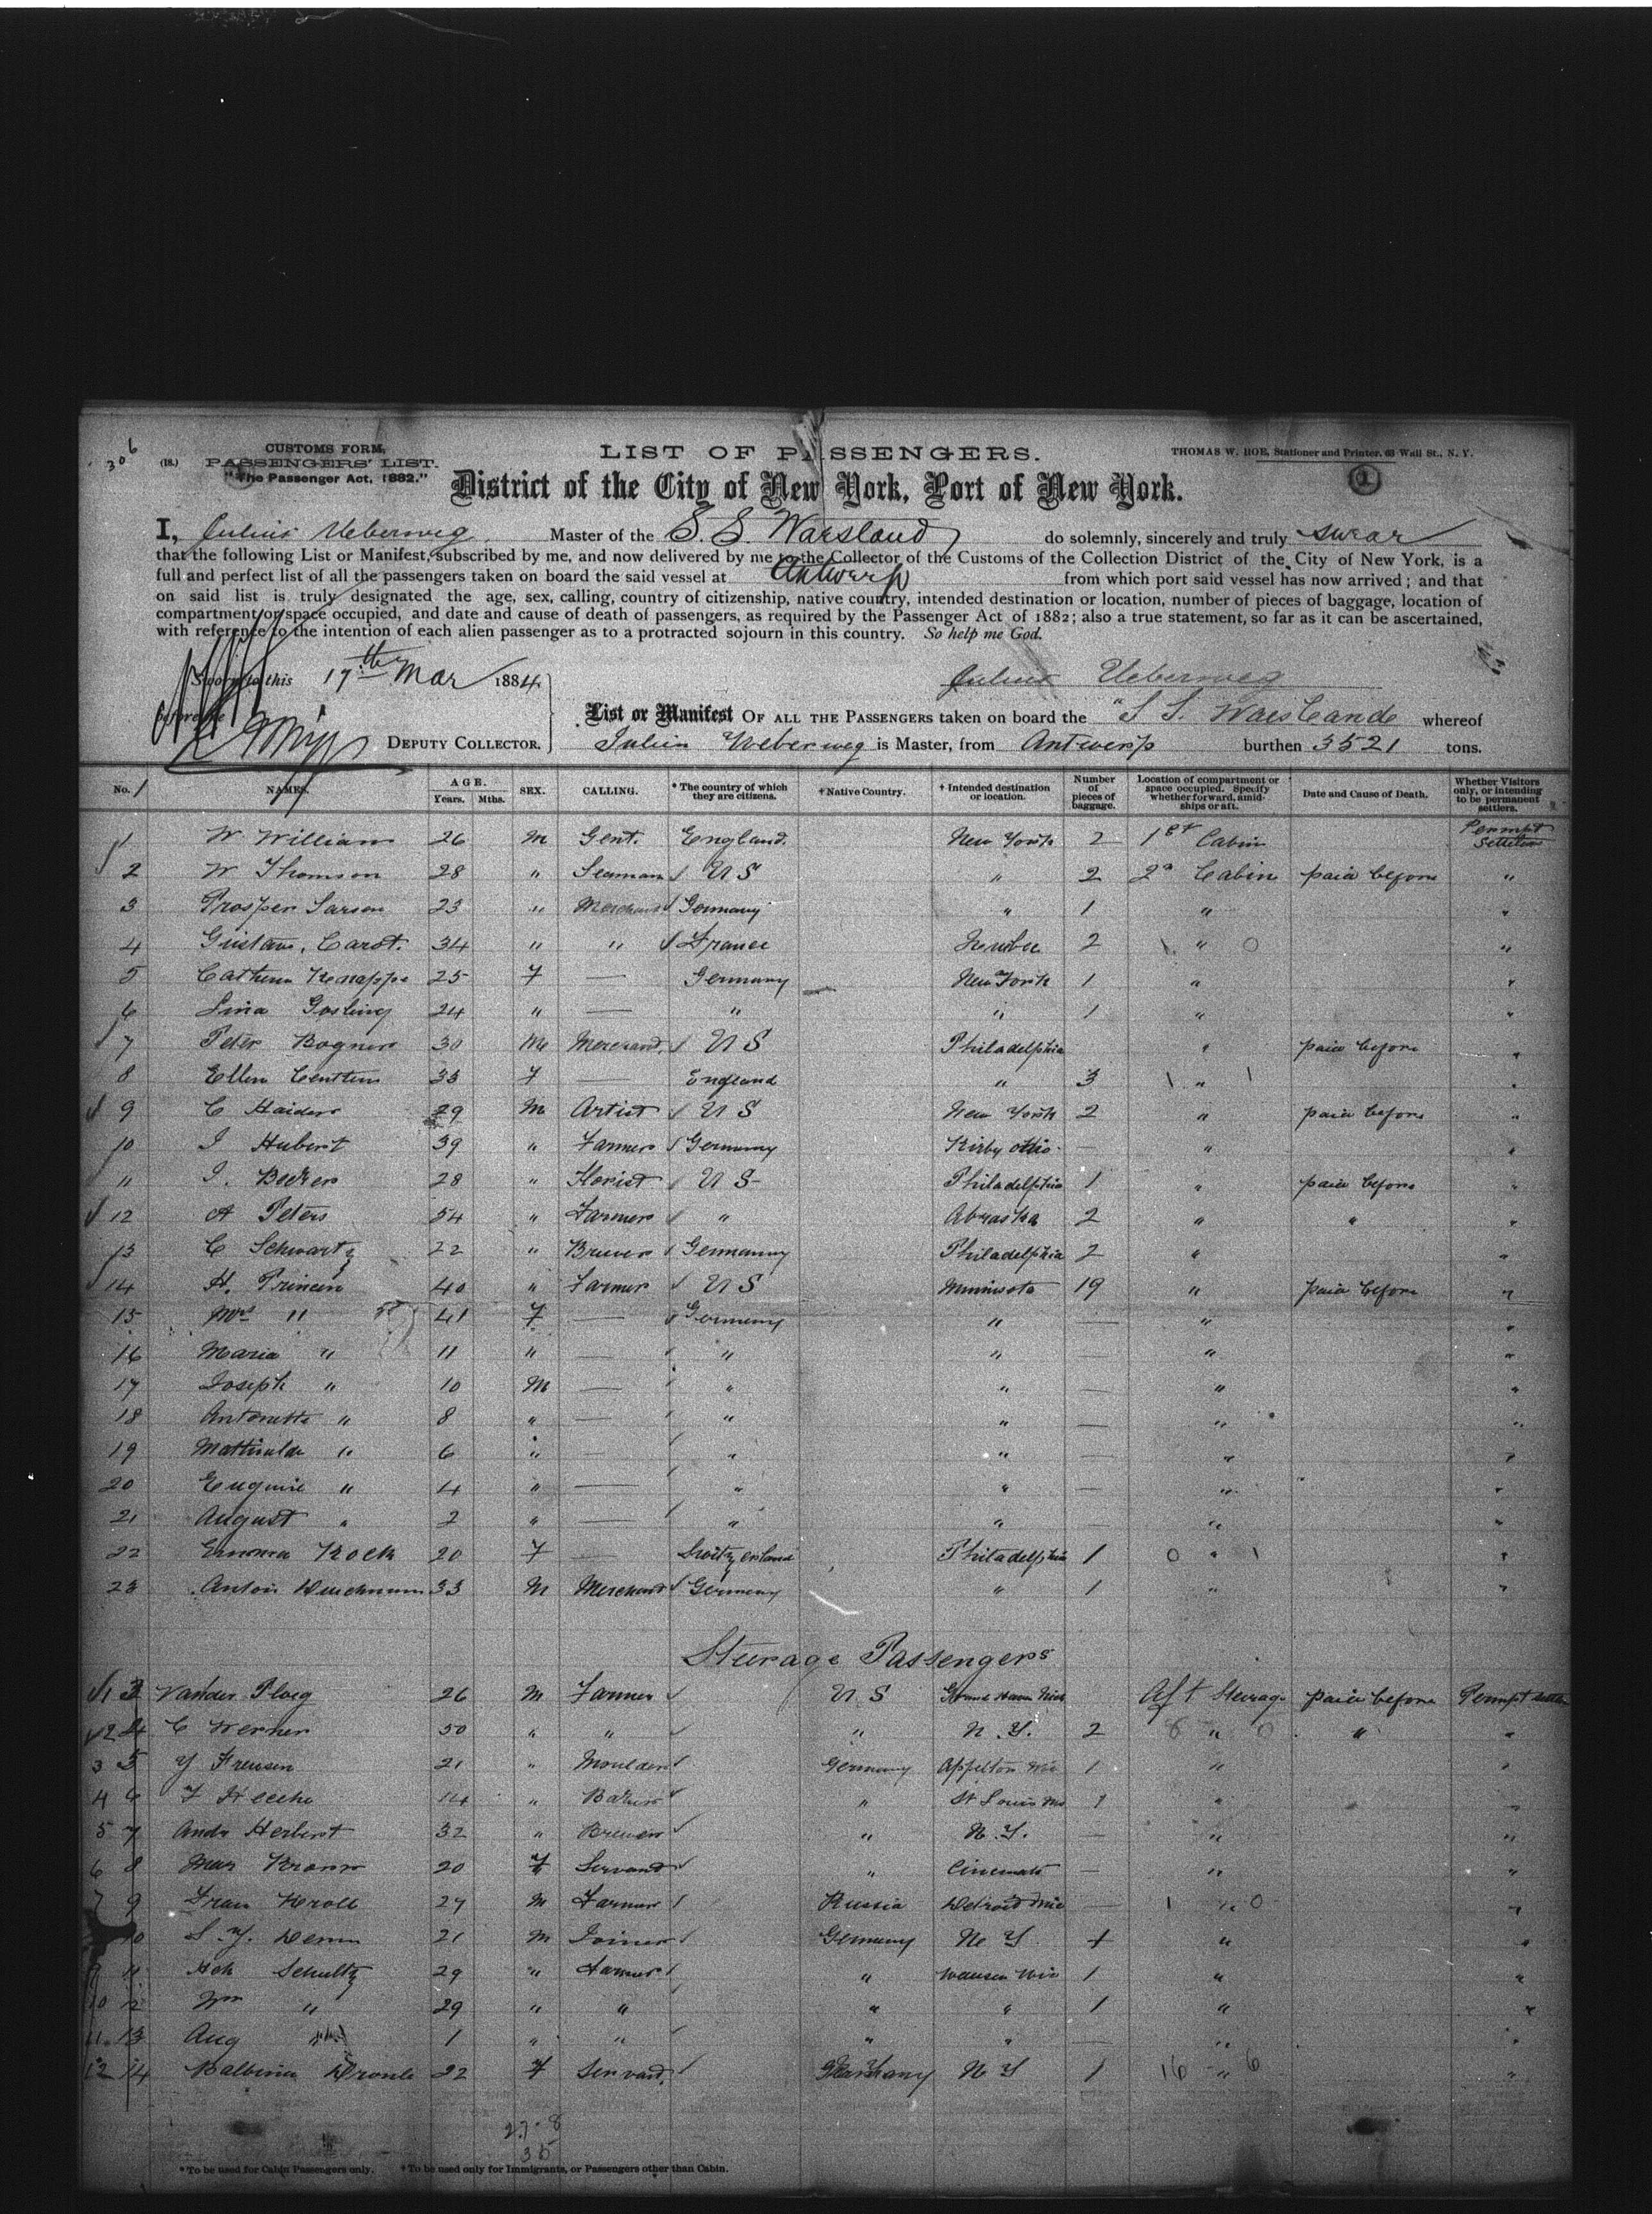 306
(18.) CUSTOMS FORM,
PASSENGERS' LIST.
"The Passenger Act, 1882."
LIST OF PASSENGERS.
THOMAS W. ROE, Stationer and Printer, 63 Wall St., N. Y.
1
District of the City of New York, Port of New York.
I, Julius Ueberweg Master of the S. S. Waesland do solemnly, sincerely and truly swear
that the following List or Manifest, subscribed by me, and now delivered by me to the Collector of the Customs of the Collection District of the City of New York, is a
full and perfect list of all the passengers taken on board the said vessel at Antwerp from which port said vessel has now arrived; and that
on said list is truly designated the age, sex, calling, country of citizenship, native country, intended destination or location, number of pieces of baggage, location of
compartment or space occupied, and date and cause of death of passengers, as required by the Passenger Act of 1882; also a true statement, so far as it can be ascertained,
with reference to the intention of each alien passenger as to a protracted sojourn in this country. So help me God.
Sworn to this 17th Mar 1884
before me
Julius Ueberweg
DEPUTY COLLECTOR.
List or Manifest OF ALL THE PASSENGERS taken on board the "S S. Waesland whereof
Julius Ueberweg is Master, from Antwerp burthen 3521 tons.
No. NAMES. AGE. Years. Mths. SEX. CALLING. * The country of which they are citizens. † Native Country. † Intended destination or location. Number of pieces of baggage. Location of compartment or space occupied. Specify whether forward, amidships or aft. Date and Cause of Death. Whether Visitors only, or intending to be permanent settlers.
1 W William 26 M Gent. England. New York 2 1st Cabin Permnt Settlers
2 W Thomson 28 " Seaman U S " 2 2d Cabin paid before "
3 Prosper Larsen 23 " Merchant Germany " 1 " "
4 Gustav. Carot. 34 " " France 2 " 0 "
5 Cathern Knappe 25 F — Germany New York 1 " "
6 Lina Gosling 24 " — " " 1 " "
7 Peter Bogner 30 M Merchand. U S Philadelphia " paid before "
8 Ellen 33 F — England " 3 1 " 1 "
9 C Haider 29 M Artist U S New York 2 " paid before "
10 J Hubert 39 " Farmer Germany Kirby Ohio — " "
11 J. Becker 28 " Florist U S Philadelphia 1 " paid before "
12 A Peters 54 " Farmer " Abraska 2 " " "
13 C Schwartz 22 " Brewer Germanny Philadelphia 2 " "
14 H. Princen 40 " Farmer U S Minnisota 19 " paid before "
15 Mrs " 41 F — Germany " — " "
16 Maria " 11 " — " " " "
17 Joseph " 10 M — " " — " "
18 Antonette " 8 " — " " — " "
19 Mathilde " 6 " — " " — " "
20 Eugenie " 4 " — " " — " "
21 August " 2 " — " " — " "
22 Emma Kock 20 F — Switzerland Philadelphia 1 0 " 1 "
23 Anton 33 M Merchant Germany " 1 " "
Steerage Passengers
1 3 Vander Ploeg 26 M Farmer U S Grand Haven Mich Aft Steerage paid before Permnt settler
2 4 C Werner 50 " " " N. Y. 2 8 " 0 " "
3 5 Y Freusen 21 " Moulder Germany Appelton Wis 1 " "
4 6 F 14 " Baker " St Louis Mo 1 " "
5 7 Andr Herbert 32 " Brewer " N. Y. — " "
6 8 Mar 20 F Servand " Cincinati — " "
7 9 27 M Farmer Russia Detroit Mic — 1 " 0 "
0 21 M Joiner Germany N Y 1 " "
11 Schultz 29 " Farmer " Wausau Wis 1 " "
10 12 Wm " 29 " " " " 1 " "
11 13 Aug 1 " " " " — " "
12 14 Balbina 22 F Servand. Germany N Y 1 16 " 6 "
27-8
35
* To be used for Cabin Passengers only. † To be used only for Immigrants, or Passengers other than Cabin.